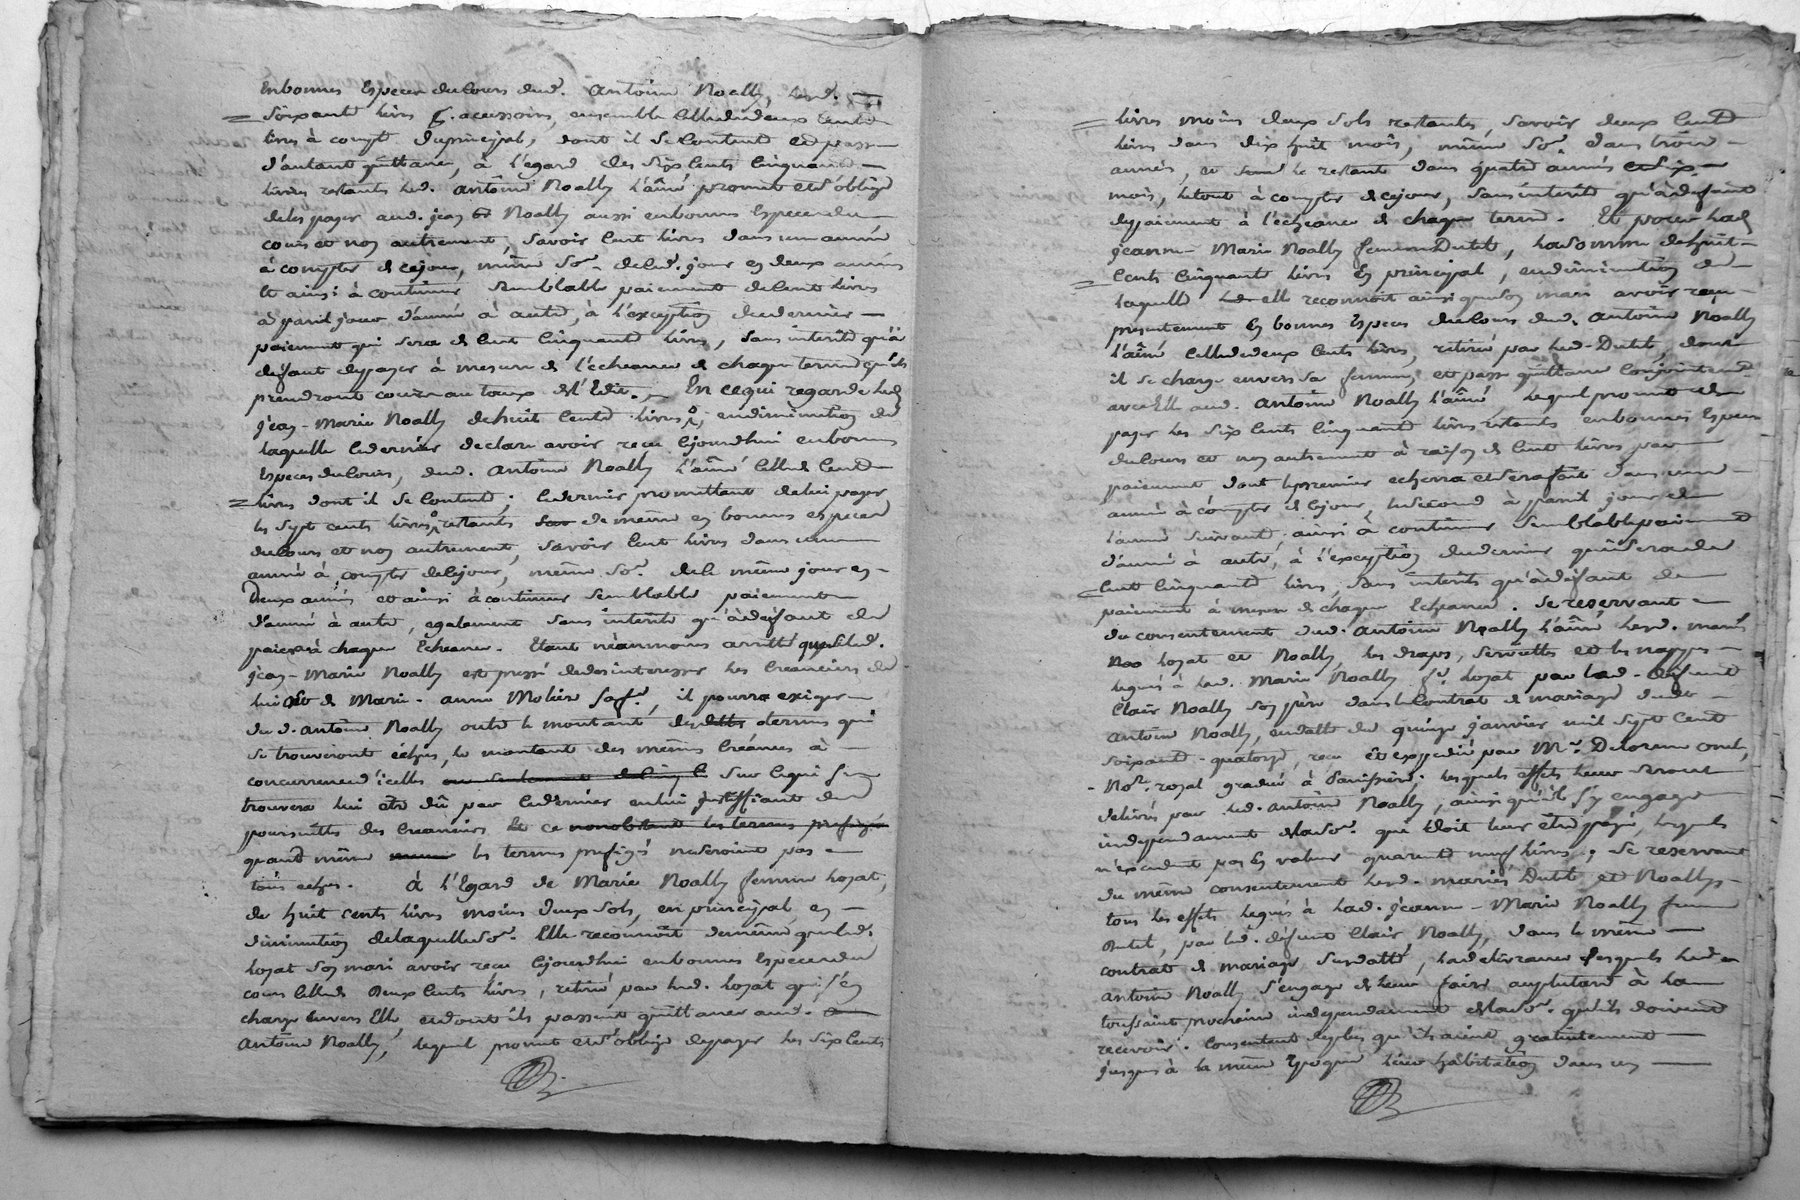 en bonnes especes du cours dud. antoine Noally, lesd.
soixante livres d'accessoires, ensemble celle de deux cents
livres à compte du principal, dont il se contente et passe
d'autant quittance, à l'egard des six cents cinquante
livres restants led. antoine Noally l'aîné promet et s'oblige
de les payer aud. jean Noally aussi en bonnes especes du
cours et non autrement, savoir cent livres dans une année
à compter de ce jour, même so.e dud. jour en deux années
et ainsi à continuer semblable paiement de cent livres
à pareil jour d'année à autre, à l'exception du dernier
paiement qui sera de cent cinquante livres, sans interêts qu'à
defaut de payer à mesure de l'écheance de chaque terme qu'ils
prendront cours au taux de l'Edit. En ce qui regarde led.
jean-Marie Noally de huit cents livres, en diminution de
laquelle ce dernier declare avoir reçu cejourdhui en bonnes
especes du cours, dud. antoine Noally l'aîné celle de cent
livres dont il se contente; ce dernier promettant de lui payer
les sept cents livres restants de même en bonnes especes
du cours et non autrement, savoir cent livres dans une
année à compter de ce jour, même so.e de le même jour en
Deux années et ainsi à continuer semblable paiement
d'année à autre, egalement sans interêts qu'à défaut de
paier à chaque Echeance. Etant néanmoins arrêté que si led.
jean-Marie Noally est pressé de desinteresser les creanciers de
lui et de Marie-anne Molière sa fe., il pourra exiger
dud. antoine Noally outre le montant des termes qui
se trouveront échus, le montant des mêmes Créances à
concurrence d'icelles sur ce qui se
trouvera lui être dû par ce dernier en lui justiffiant des
poursuittes des creanciers et ce nonobstant les termes prefigés
quand même les termes prefigés ne seroient pas
tous echus. À l'Egard de Marie Noally femme Loyat,
de huit cents livres moins deux sols, en principal, en
diminution de laquelle so.e Elle reconnoît de même que led.
Loyat son mari avoir reçu cejourdhui en bonnes especes du
cours celle de Deux cents livres, retiré par led. Loyat qui s'en
charge envers Elle, et dont ils passent quittance aud.
antoine Noally, lequel promet et s'oblige de payer les six cents
livres moins deux sols restantes, savoir deux cents
livres dans dix huit mois, même so.e dans trois
années, et le restant dans quatre années et six
mois, le tout à compter de ce jour, sans interêts qu'à defaut
de paiement à l'écheance de chaque terme. Et pour lad.
jeanne-Marie Noally femme Dutel, la somme de huit
cents cinquante livres en principal, en diminution de
laquelle elle reconnoit ainsi que son mari avoir reçu
presentement en bonnes especes du cours dud. antoine Noally
l'aîné celle de deux cents livres, retiré par led. Dutel, dont
il se charge envers sa femme, et passe quittance conjointement
avec Elle aud. antoine Noally l'aîné lequel promet de
payer les six cents cinquante livres restants en bonnes especes
du cours et non autrement à raison de cent livres par
paiement dont le premier echerra et sera fait dans une
année à compter de ce jour, le second à pareil jour de
l'année suivante, ainsi à continuer semblable paiement
d'année à autre, à l'exception du dernier qui sera de
cent cinquante livres, sans interêts qu'à défaut de
paiement à mesure de chaque Echeance. Se reservant
du consentement dud. antoine Noally l'aîné lesd. mariés
Loyat et Noally, les draps, serviettes et les nappes
legués à lad. Marie Noally fe. Loyat par led. defunt
Clair Noally son père dans le contrat de mariage dud.
antoine Noally, en datte du quinze janvier mil sept cent
soixante-quatorze, reçu et expedié par M.e Delorme
No.re royal gradué à Panissière; lesquels effets leur seront
delivrés par led. antoine Noally, ainsi qu'il s'y engage
independament de la so.e qui doit leur être payé, lesquels
n'excedent pas en valeur quarante neuf livres; se reservant
du même consentement lesd. mariés Dutel et Noally
tous les effets legués à lad. jeanne-Marie Noally femme
Dutel, par led. défunt Clair Noally, dans le même
contrat de mariage susdatté, la delivrance desquels led.
antoine Noally s'engage de leur faire au plus tard à la
toussaint prochaine independament de la so.e qu'ils doivent
recevoir. Consentant de plus qu'ils aient gratuitement
jusques à la même Epoque leur habitation dans un